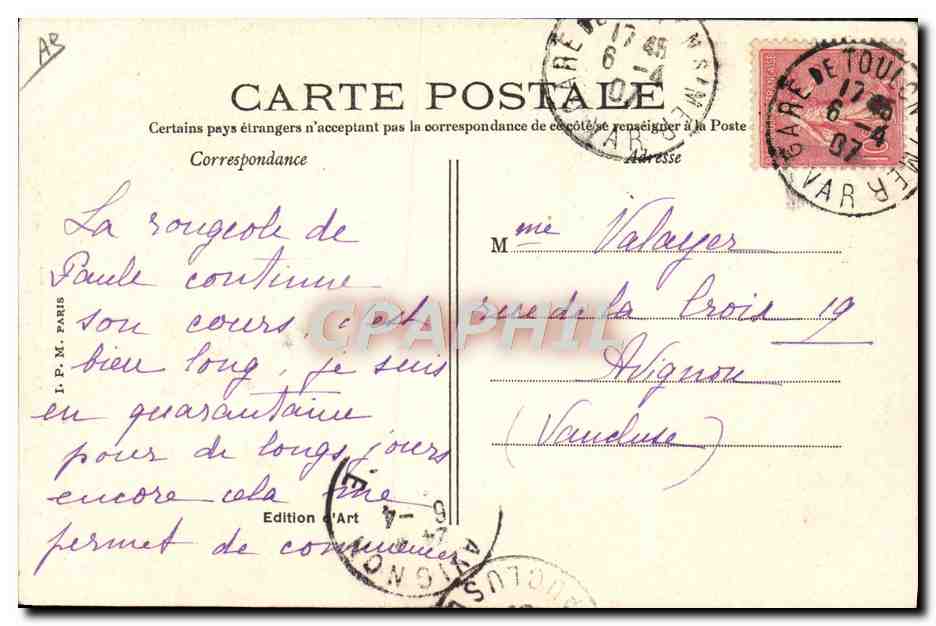 AB
CARTE POSTALE
Certains pays étrangers n'acceptant pas la correspondance de ce côté se renseigner à la Poste
Correspondance
Adresse
La rougeole de
Paule continue
son cours, c'est
bien long, je suis
en quarantaine
pour de longs jours
encore cela me
permet de commencer
Mme Valayer
rue de la Croix 19
Avignon
(Vaucluse)
I. P. M. PARIS
Edition d'Art
CPAPHIL
GARE DE
17 45
6 -4
07
VAR
GARE DE TOULON S MER
17 45
6 -4
07
VAR
AVIGNON
6 -4
VAUCLUSE